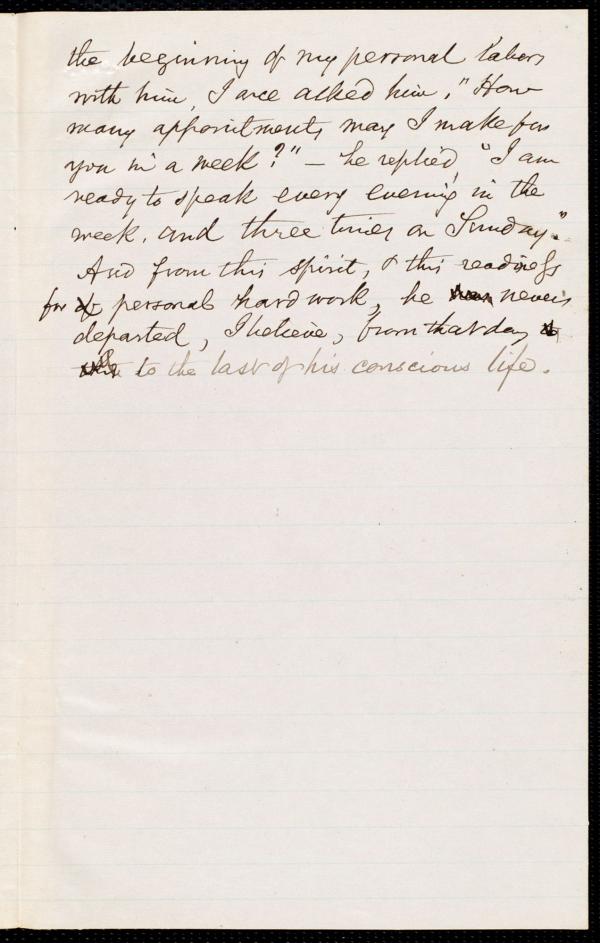 the beginning of my personal labors
with him, I once asked him, "How
many appointments may I make for
you in a week?" — he replied, "I am
ready to speak every evening in the
week, and three times on Sunday."
And from this spirit, & this readiness
for of personal hard work, he has never
departed, I believe, from that day
to the last of his conscious life.